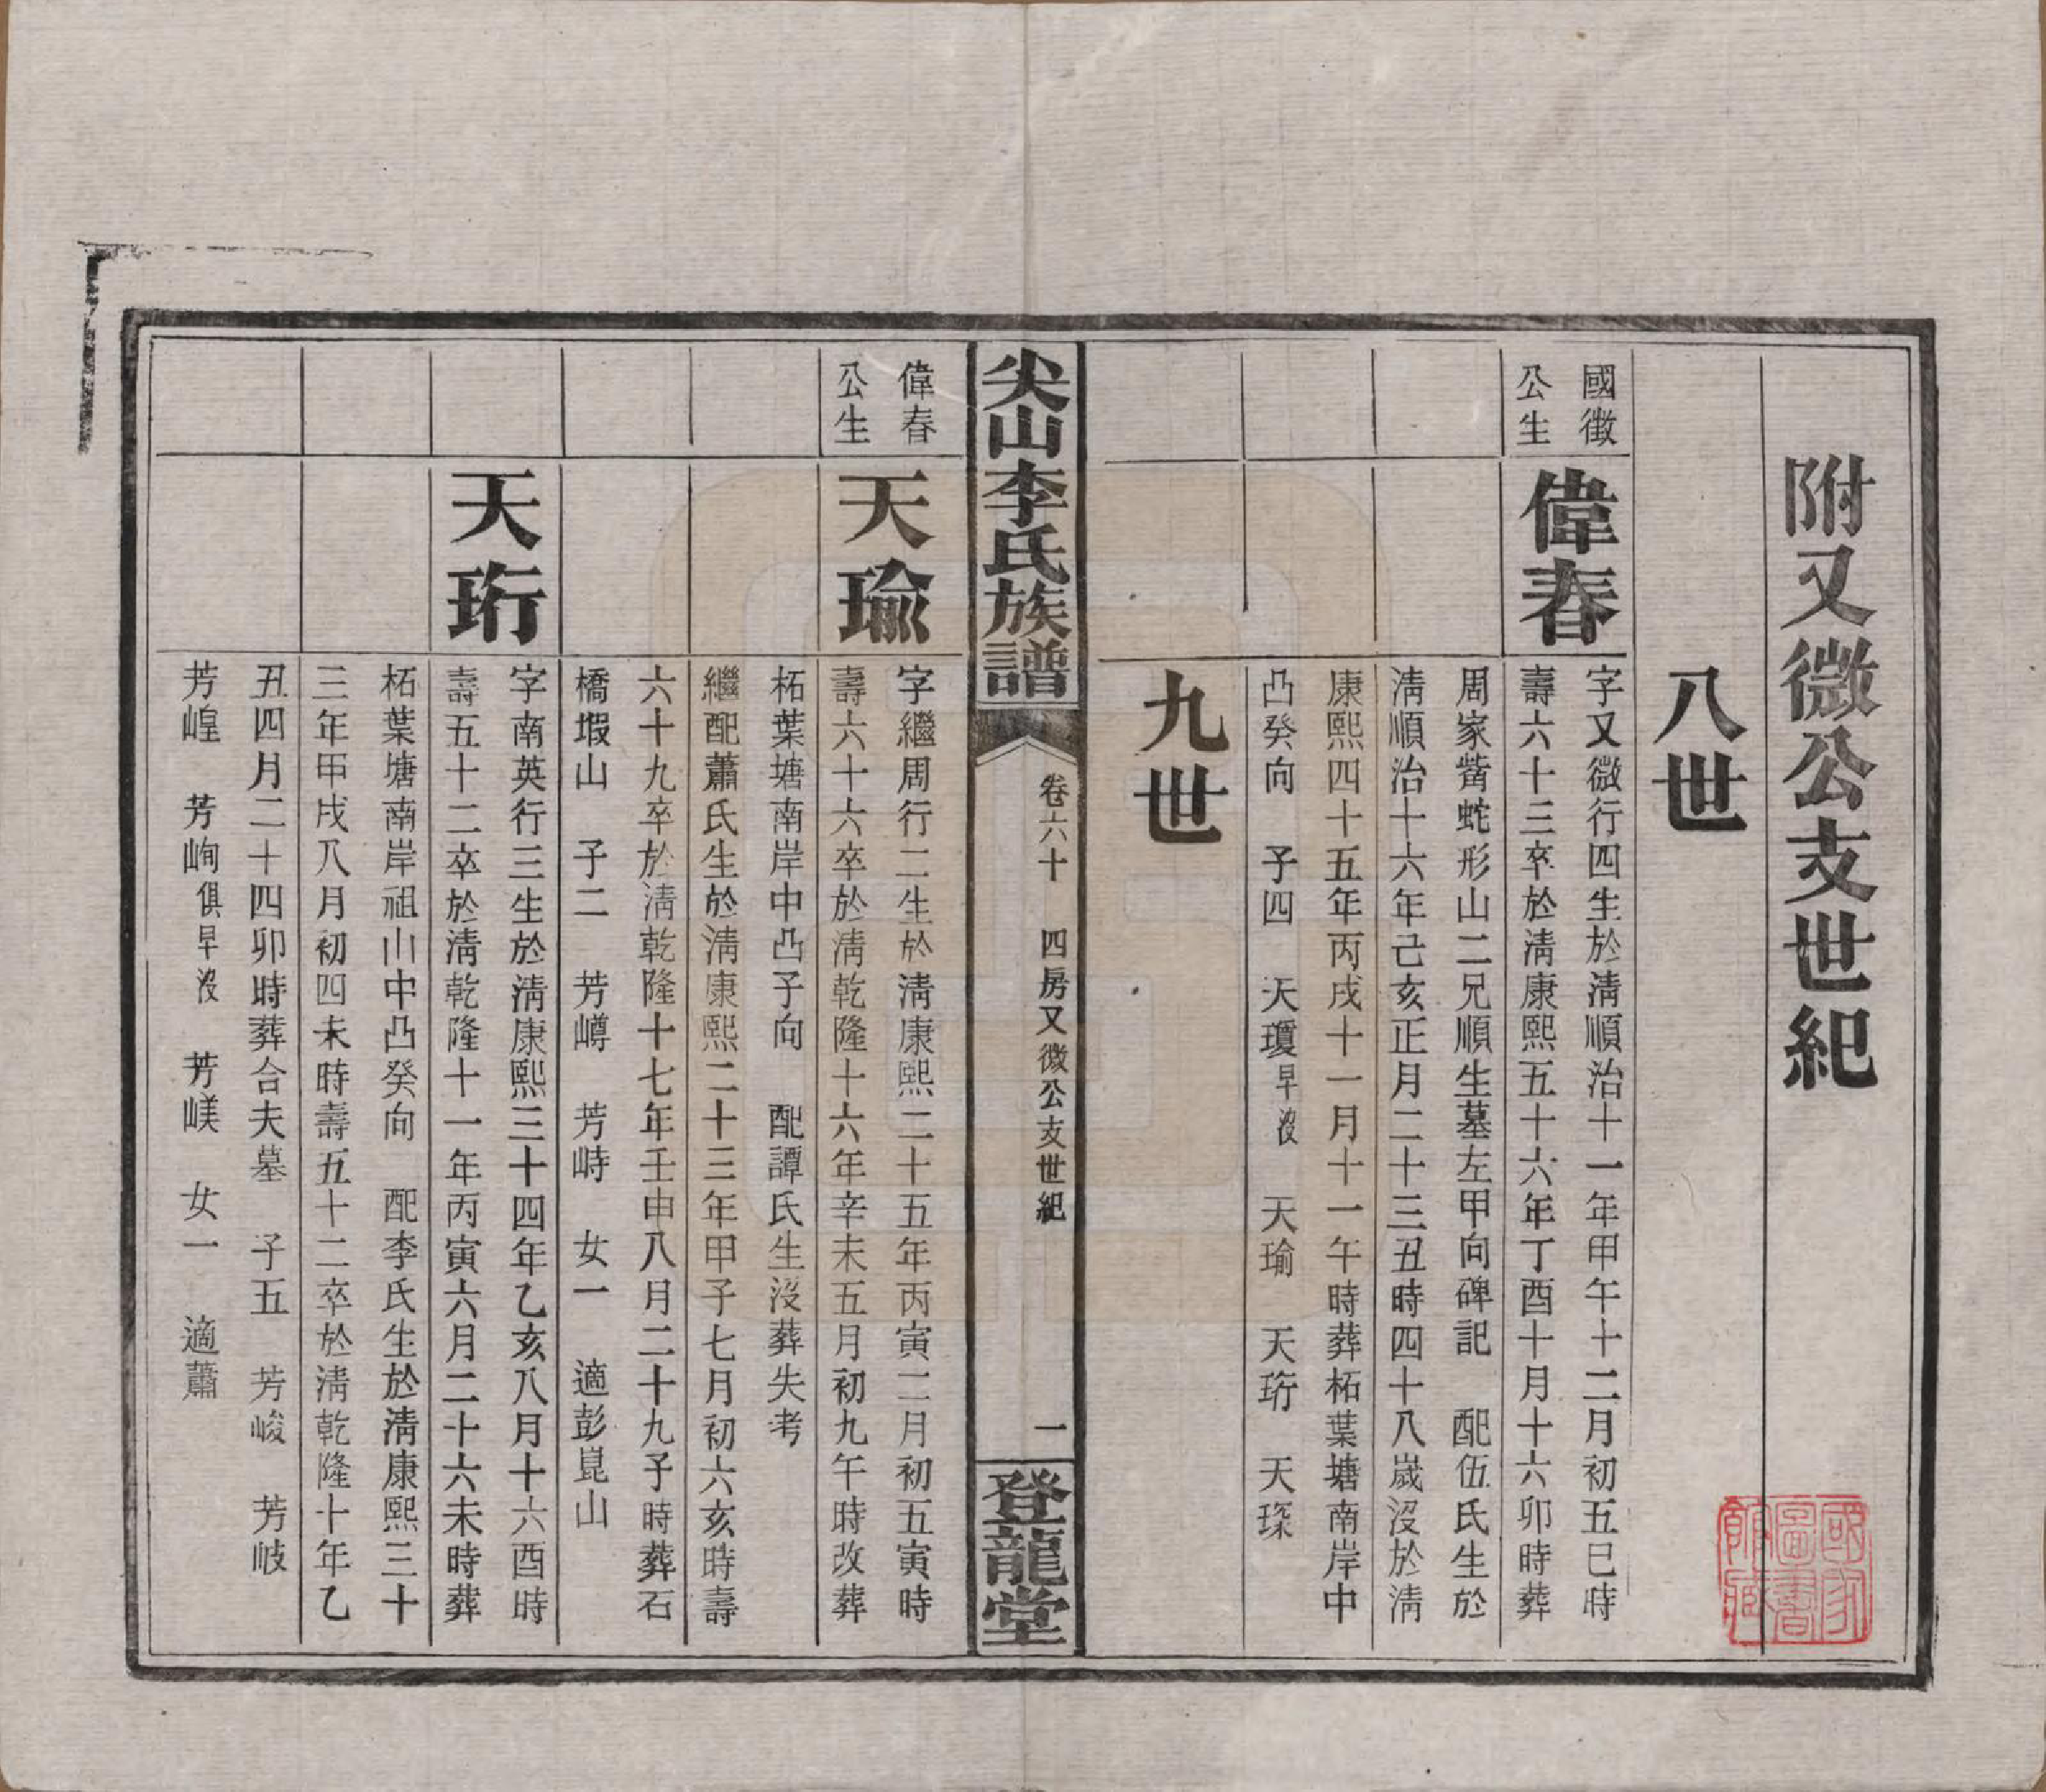 附又微公支世紀
八世
國徵
公生
偉春
字又微行四生於淸順治十一年甲午十二月初五巳時
壽六十三卒於淸康熙五十六年丁酉十月十六卯時葬
周家觜蛇形山二兄順生墓左甲向碑記　配伍氏生於
淸順治十六年己亥正月二十三丑時四十八歲沒於淸
康熙四十五年丙戌十一月十一午時葬柘葉塘南岸中
凸癸向　子四　天瓊早沒　天瑜　天珩　天琛
九世
尖山李氏族譜
卷六十　四房又微公支世紀
一
登龍堂
偉春
公生
天瑜
字繼周行二生於淸康熙二十五年丙寅二月初五寅時
壽六十六卒於淸乾隆十六年辛未五月初九午時改葬
柘葉塘南岸中凸子向　配譚氏生沒葬失考
繼配蕭氏生於淸康熙二十三年甲子七月初六亥時壽
六十九卒於淸乾隆十七年壬申八月二十九子時葬石
橋塅山　子二　芳嶟　芳峙　女一　適彭崑山
天珩
字南英行三生於淸康熙三十四年乙亥八月十六酉時
壽五十二卒於淸乾隆十一年丙寅六月二十六未時葬
柘葉塘南岸祖山中凸癸向　配李氏生於淸康熙三十
三年甲戌八月初四未時壽五十二卒於淸乾隆十年乙
丑四月二十四卯時葬合夫墓　子五　芳峻　芳岐
芳崲　芳峋俱早沒　芳嵄　女一　適蕭
國家圖書館藏